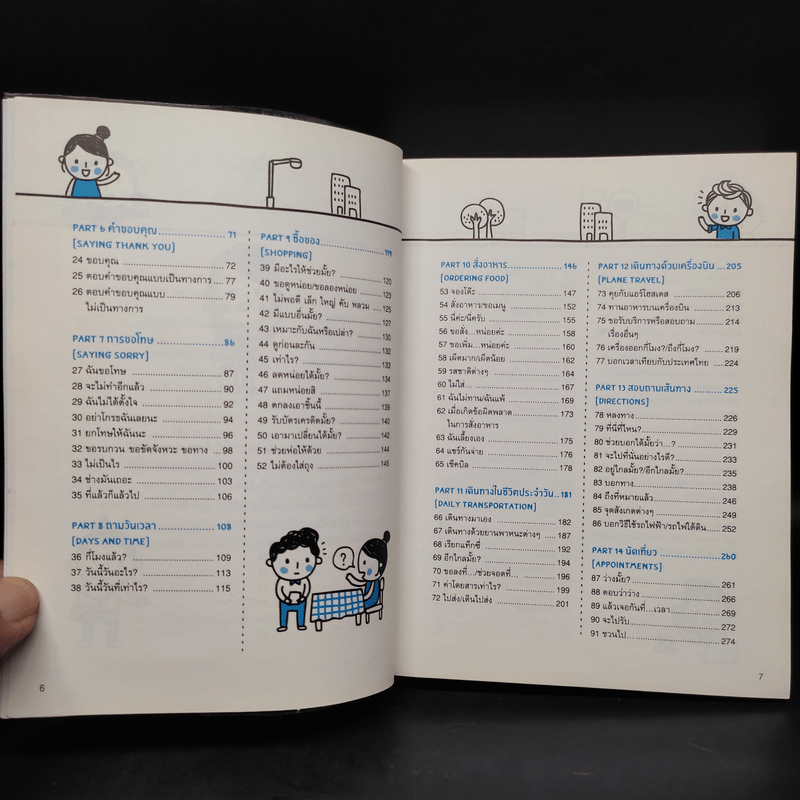 PART 6 คำขอบคุณ........................71
(SAYING THANK YOU)
24 ขอบคุณ ............................... 72
25 ตอบคำขอบคุณแบบเป็นทางการ .....77
26 ตอบคำขอบคุณแบบ .................. 79
ไม่เป็นทางการ
PART 7 การขอโทษ ........................ 86
(SAYING SORRY)
27 ฉันขอโทษ ............................ 87
28 จะไม่ทำอีกแล้ว ....................... 90
29 ฉันไม่ได้ตั้งใจ ........................ 92
30 อย่าโกรธฉันเลยนะ .................. 94
31 ยกโทษให้ฉันนะ ...................... 96
32 ขอรบกวน ขอขัดจังหวะ ขอทาง .... 98
33 ไม่เป็นไร ............................. 100
34 ช่างมันเถอะ .......................... 103
35 ที่แล้วก็แล้วไป ....................... 106
PART 8 ถามวันเวลา ...................... 108
(DAYS AND TIME)
36 กี่โมงแล้ว? ........................... 109
37 วันนี้วันอะไร? ........................ 113
38 วันนี้วันที่เท่าไร? ..................... 115
6
PART 9 ซื้อของ........................... 119
(SHOPPING)
39 มีอะไรให้ช่วยมั้ย? .................... 120
40 ขอดูหน่อย/ขอลองหน่อย ........... 123
41 ไม่พอดี เล็ก ใหญ่ คับ หลวม ....... 125
42 มีแบบอื่นมั้ย? ........................ 127
43 เหมาะกับฉันหรือเปล่า? ............. 130
44 ดูก่อนละกัน .......................... 132
45 เท่าไร? ............................... 133
46 ลดหน่อยได้มั้ย? ..................... 134
47 แถมหน่อยสิ .......................... 136
48 ตกลงเอาชิ้นนี้ ........................ 139
49 รับบัตรเครดิตมั้ย? ................... 140
50 เอามาเปลี่ยนได้มั้ย? ................. 142
51 ช่วยห่อให้ด้วย ....................... 143
52 ไม่ต้องใส่ถุง .......................... 145
?
PART 10 สั่งอาหาร....................... 146
(ORDERING FOOD)
53 จองโต๊ะ ............................... 147
54 สั่งอาหาร/ขอเมนู .................... 152
55 นี่ค่ะ/นี่ครับ ........................... 155
56 ขอสั่ง...หน่อยค่ะ .................... 158
57 ขอเพิ่ม...หน่อยค่ะ ................... 160
58 เผ็ดมาก/เผ็ดน้อย ................... 162
59 รสชาติต่างๆ .......................... 164
60 ไม่ใส่ .................................. 167
61 ฉันไม่ทาน/ฉันแพ้ .................... 169
62 เมื่อเกิดข้อผิดพลาด ................. 173
ในการสั่งอาหาร
63 ฉันเลี้ยงเอง ........................... 175
64 แชร์กันจ่าย ........................... 176
65 เช็คบิล ................................ 178
PART 11 เดินทางในชีวิตประจำวัน .. 181
(DAILY TRANSPORTATION)
66 เดินทางมาเอง ....................... 182
67 เดินทางด้วยยานพาหนะต่างๆ ...... 187
68 เรียกแท็กซี่ ........................... 193
69 อีกไกลมั้ย? ........................... 194
70 ขอลงที่.../ช่วยจอดที่... ............. 196
71 ค่าโดยสารเท่าไร? ................... 199
72 ไปส่ง/เดินไปส่ง ...................... 201
PART 12 เดินทางด้วยเครื่องบิน ...... 205
(PLANE TRAVEL)
73 คุยกับแอร์โฮสเตส ................... 206
74 ทานอาหารบนเครื่องบิน ............. 213
75 ขอรับบริการหรือสอบถาม ........... 214
เรื่องอื่นๆ
76 เครื่องออกกี่โมง?/ถึงกี่โมง? ........ 219
77 บอกเวลาเทียบกับประเทศไทย ..... 224
PART 13 สอบถามเส้นทาง ............. 225
(DIRECTIONS)
78 หลงทาง .............................. 226
79 ที่นี่ที่ไหน? ........................... 229
80 ช่วยบอกได้มั้ยว่า...? ................ 231
81 จะไปที่นั่นอย่างไรดี? ................ 233
82 อยู่ไกลมั้ย?/อีกไกลมั้ย? ............. 235
83 บอกทาง .............................. 238
84 ถึงที่หมายแล้ว ....................... 246
85 จุดสังเกตต่างๆ ....................... 249
86 บอกวิธีใช้รถไฟฟ้า/รถไฟใต้ดิน .... 252
PART 14 นัดเที่ยว ....................... 260
(APPOINTMENTS)
87 ว่างมั้ย? ............................... 261
88 ตอบว่าว่าง ........................... 266
89 แล้วเจอกันที่...เวลา ................. 269
90 จะไปรับ ............................... 272
91 ชวนไป... ............................. 274
7